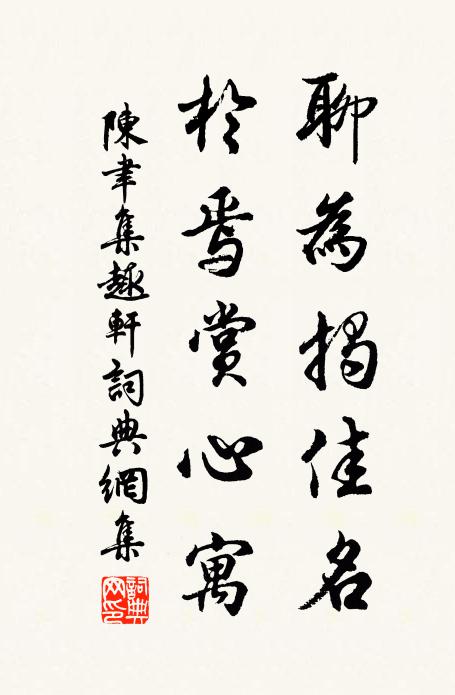 聊為揭佳名
於焉賞心寓
陳聿集趣軒詞典網集
詞典網印